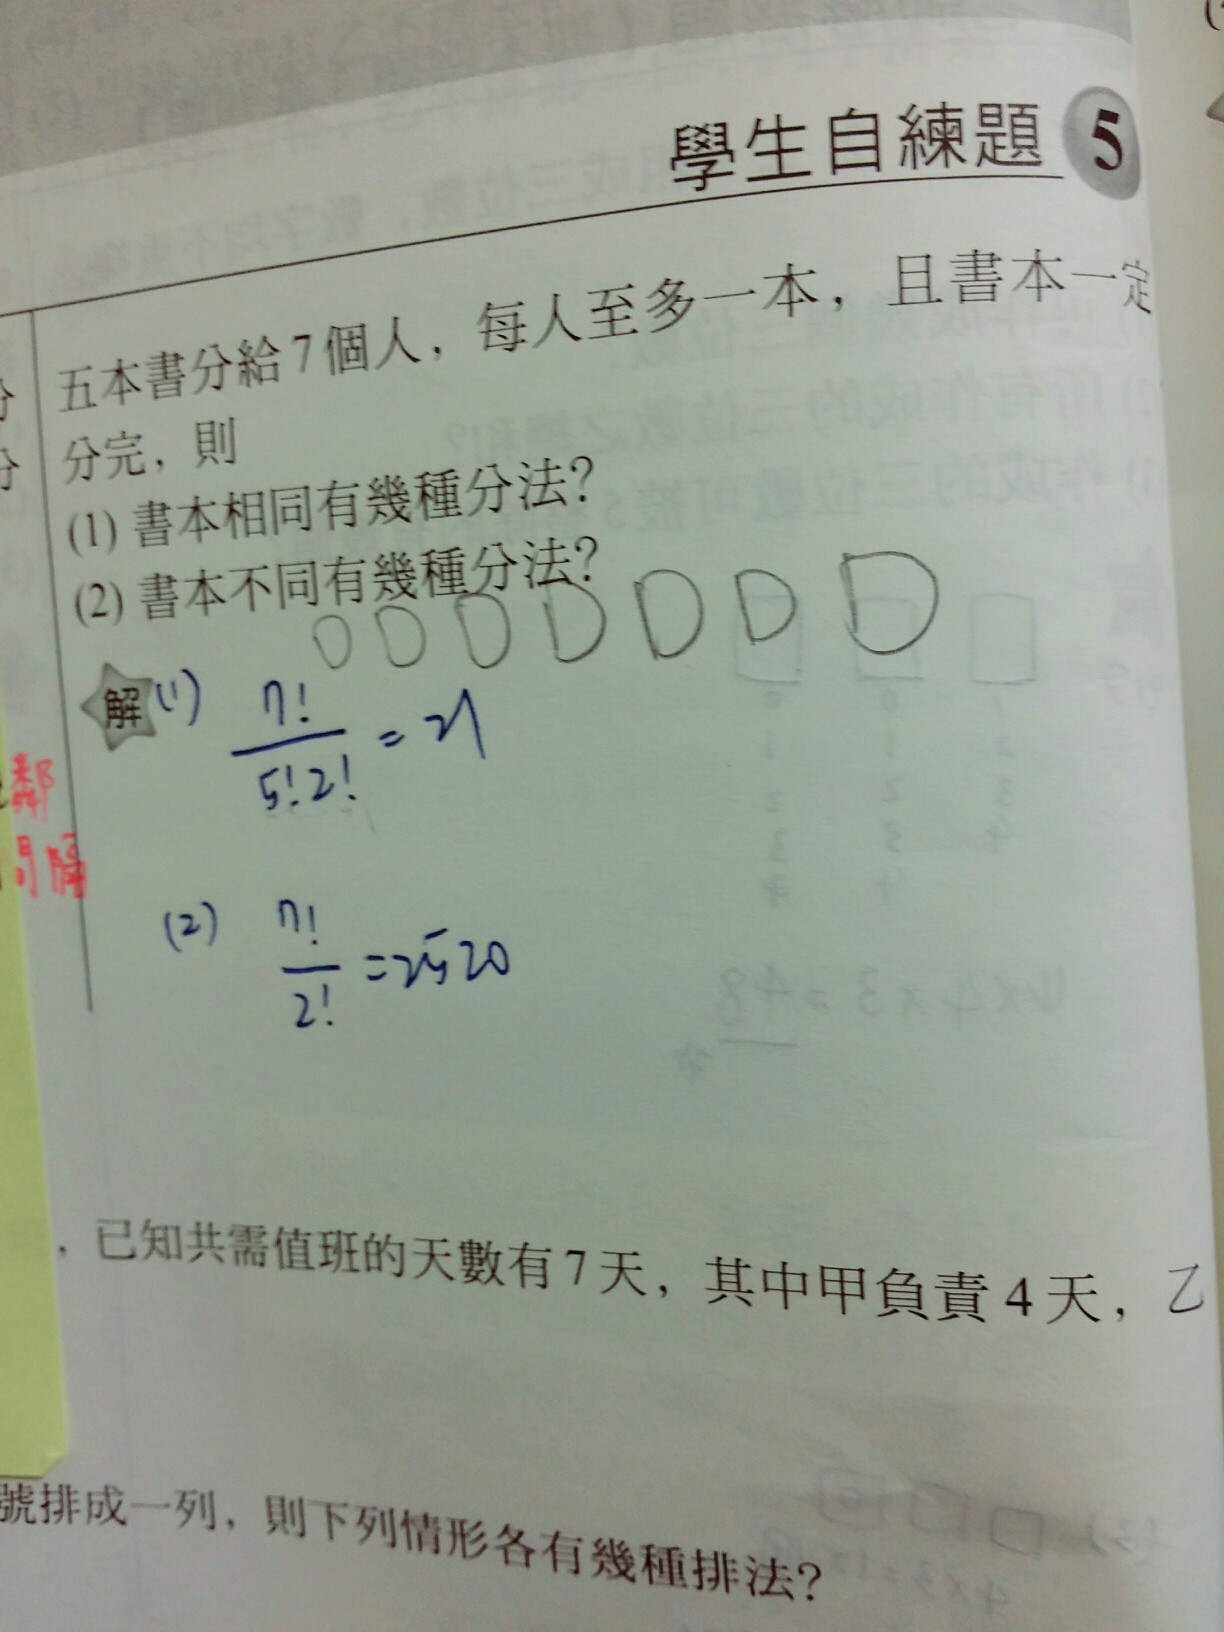 學生自練題 5
五本書分給7個人，每人至多一本，且書本一定
分完，則
(1) 書本相同有幾種分法？
(2) 書本不同有幾種分法？
解 (1) 7! / 5!2! = 21
鄰
間隔
(2) 7! / 2! = 2520
，已知共需值班的天數有7天，其中甲負責4天，乙
號排成一列，則下列情形各有幾種排法？